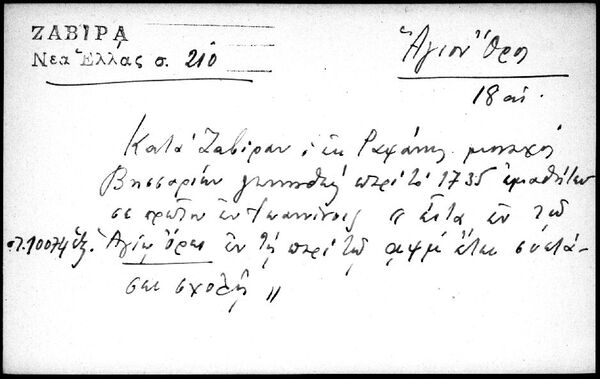 ΖΑΒΙΡΑ
Νεα Ἑλλάς σ. 210
Ἅγιον Ὄρος
18 αἰ.
Κατά Ζαβίραν, ὁ ἐκ Ραψάνης μοναχός
Βησσαρίων γεννηθείς περί τό 1735 ἐμαθήτευ
σε πρῶτον ἐν Ἰωαννίνοις " εἶτα ἐν τῷ
Ἁγίῳ Ὄρει ἐν τῇ περί τό αψμ ἔτει συστά-
σει σχολῇ "